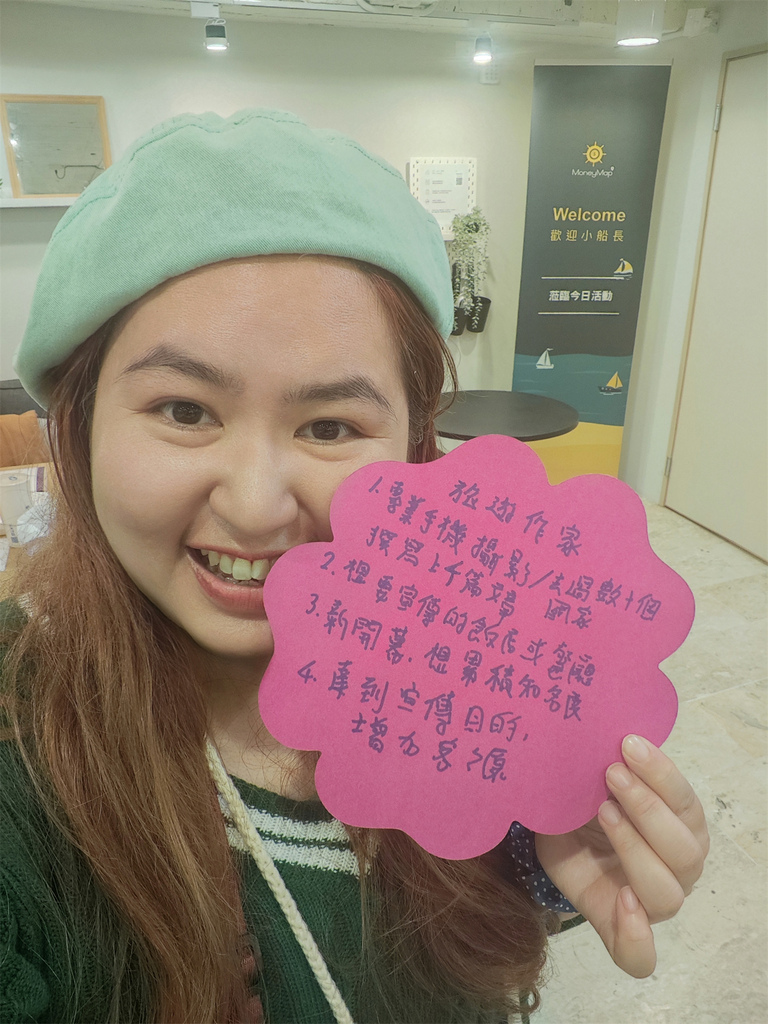 MoneyMap
Welcome
歡迎小船長
蒞臨今日活動
旅遊作家
1. 專業手機攝影/去過數十個
國家
撰寫上千篇文章
2. 想要宣傳的飯店或餐廳
3. 新開幕,想累積知名度
4. 達到宣傳目的,
增加客源